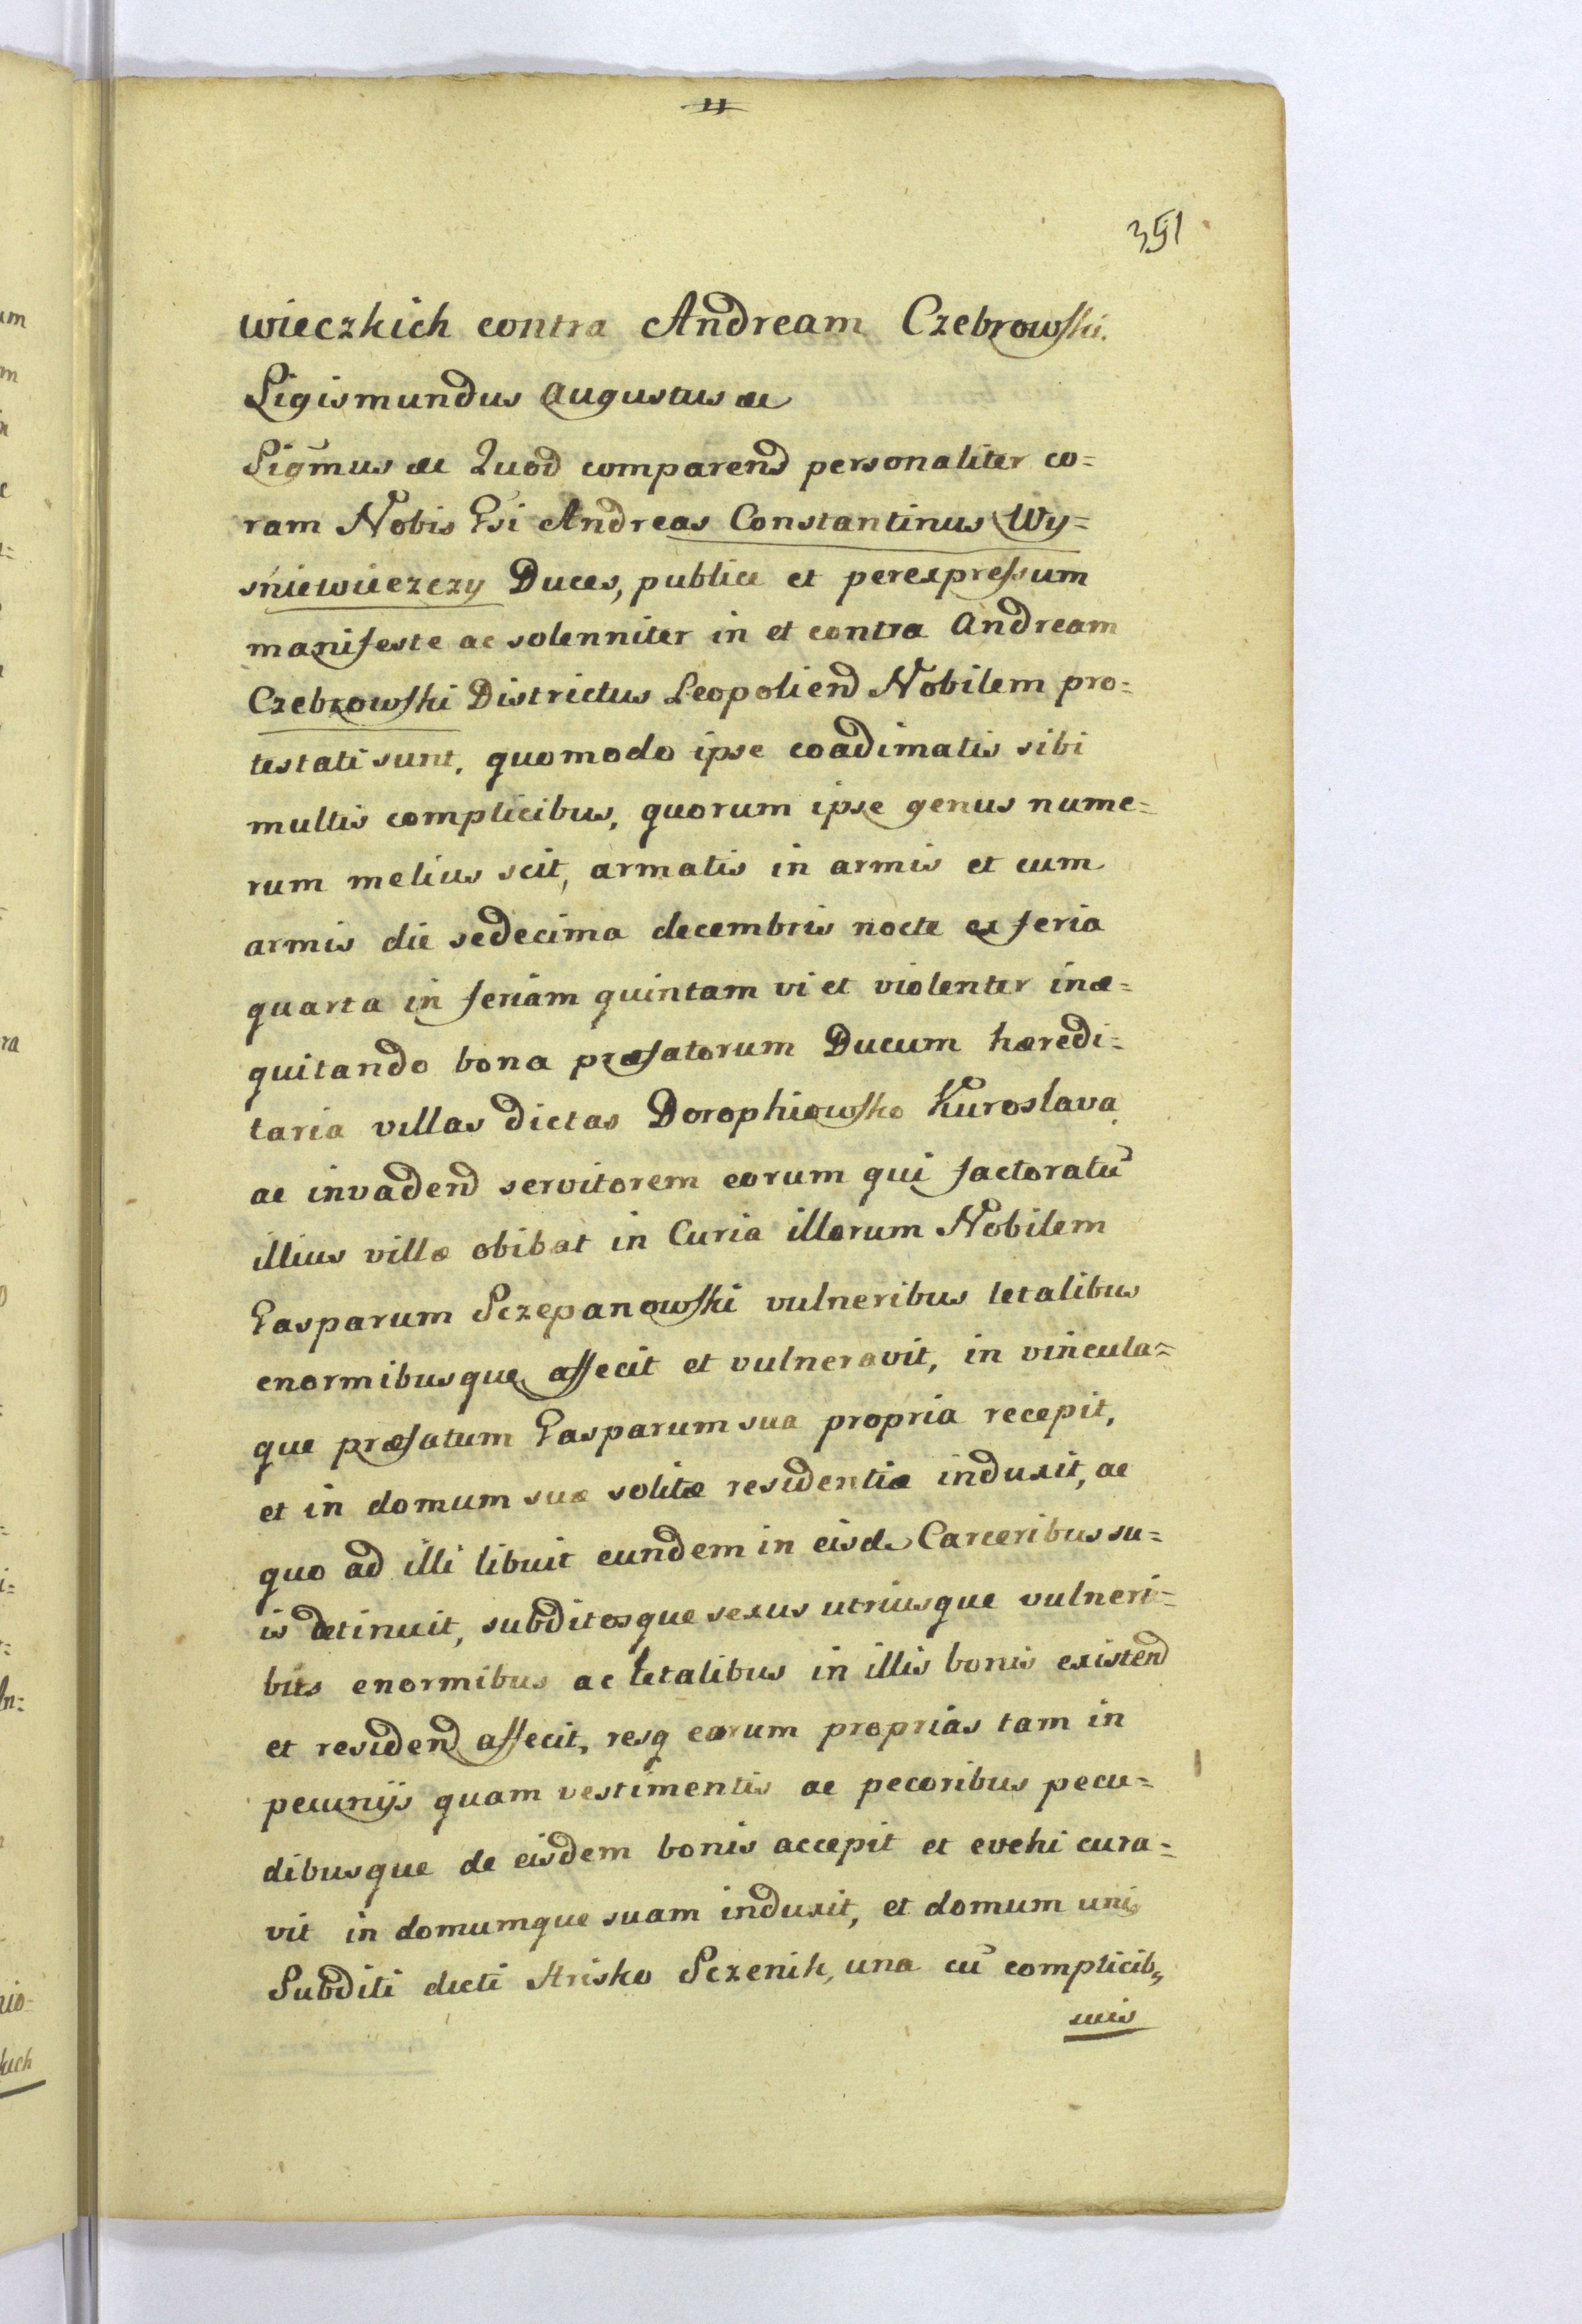 351
wieczkich contra Andream Czebrowski.
Sigismundus Augustus ac
Sigmus ac Quod comparend personaliter co=
ram Nobis Gsi Andreas Constantinus Wy=
śniewieczczy Duces, publice et perexpressum
manifeste ac solenniter in et contra Andream
Czebrowski Districtus Leopoliend Nobilem pro=
testati sunt, quomodo ipse coadimatis sibi
multis complicibus, quorum ipse genus nume=
rum melius scit, armatis in armis et cum
armis die sedecima decembris nocte ex feria
quarta in feriam quintam vi et violenter inæ=
quitando bona præfatorum Ducum hæredi=
taria villas dictas Dorophiowsko Kuroslava
ac invadend servitorem eorum qui factoratū
illius villæ obibat in Curia illorum Nobilem
Gasparum Sczepanowski vulneribus letalibus
enormibusque affecit et vulneravit, in vincula=
que præfatum Gasparum sua propria recepit,
et in domum suæ solitæ residentiæ induxit, ac
quo ad illi libuit eundem in eisd. Carceribus su=
is detinuit, subditosque sexus utriusque vulneri=
bus enormibus ac letalibus in illis bonis existend
et residend affecit, resq eorum proprias tam in
pecuniys quam vestimentis ac pecoribus pecu=
dibusque de eisdem bonis accepit et evehi cura=
vit in domumque suam induxit, et domum uni9
Subditi dicti Hrisko Sczenik, una cū complicib9
suis